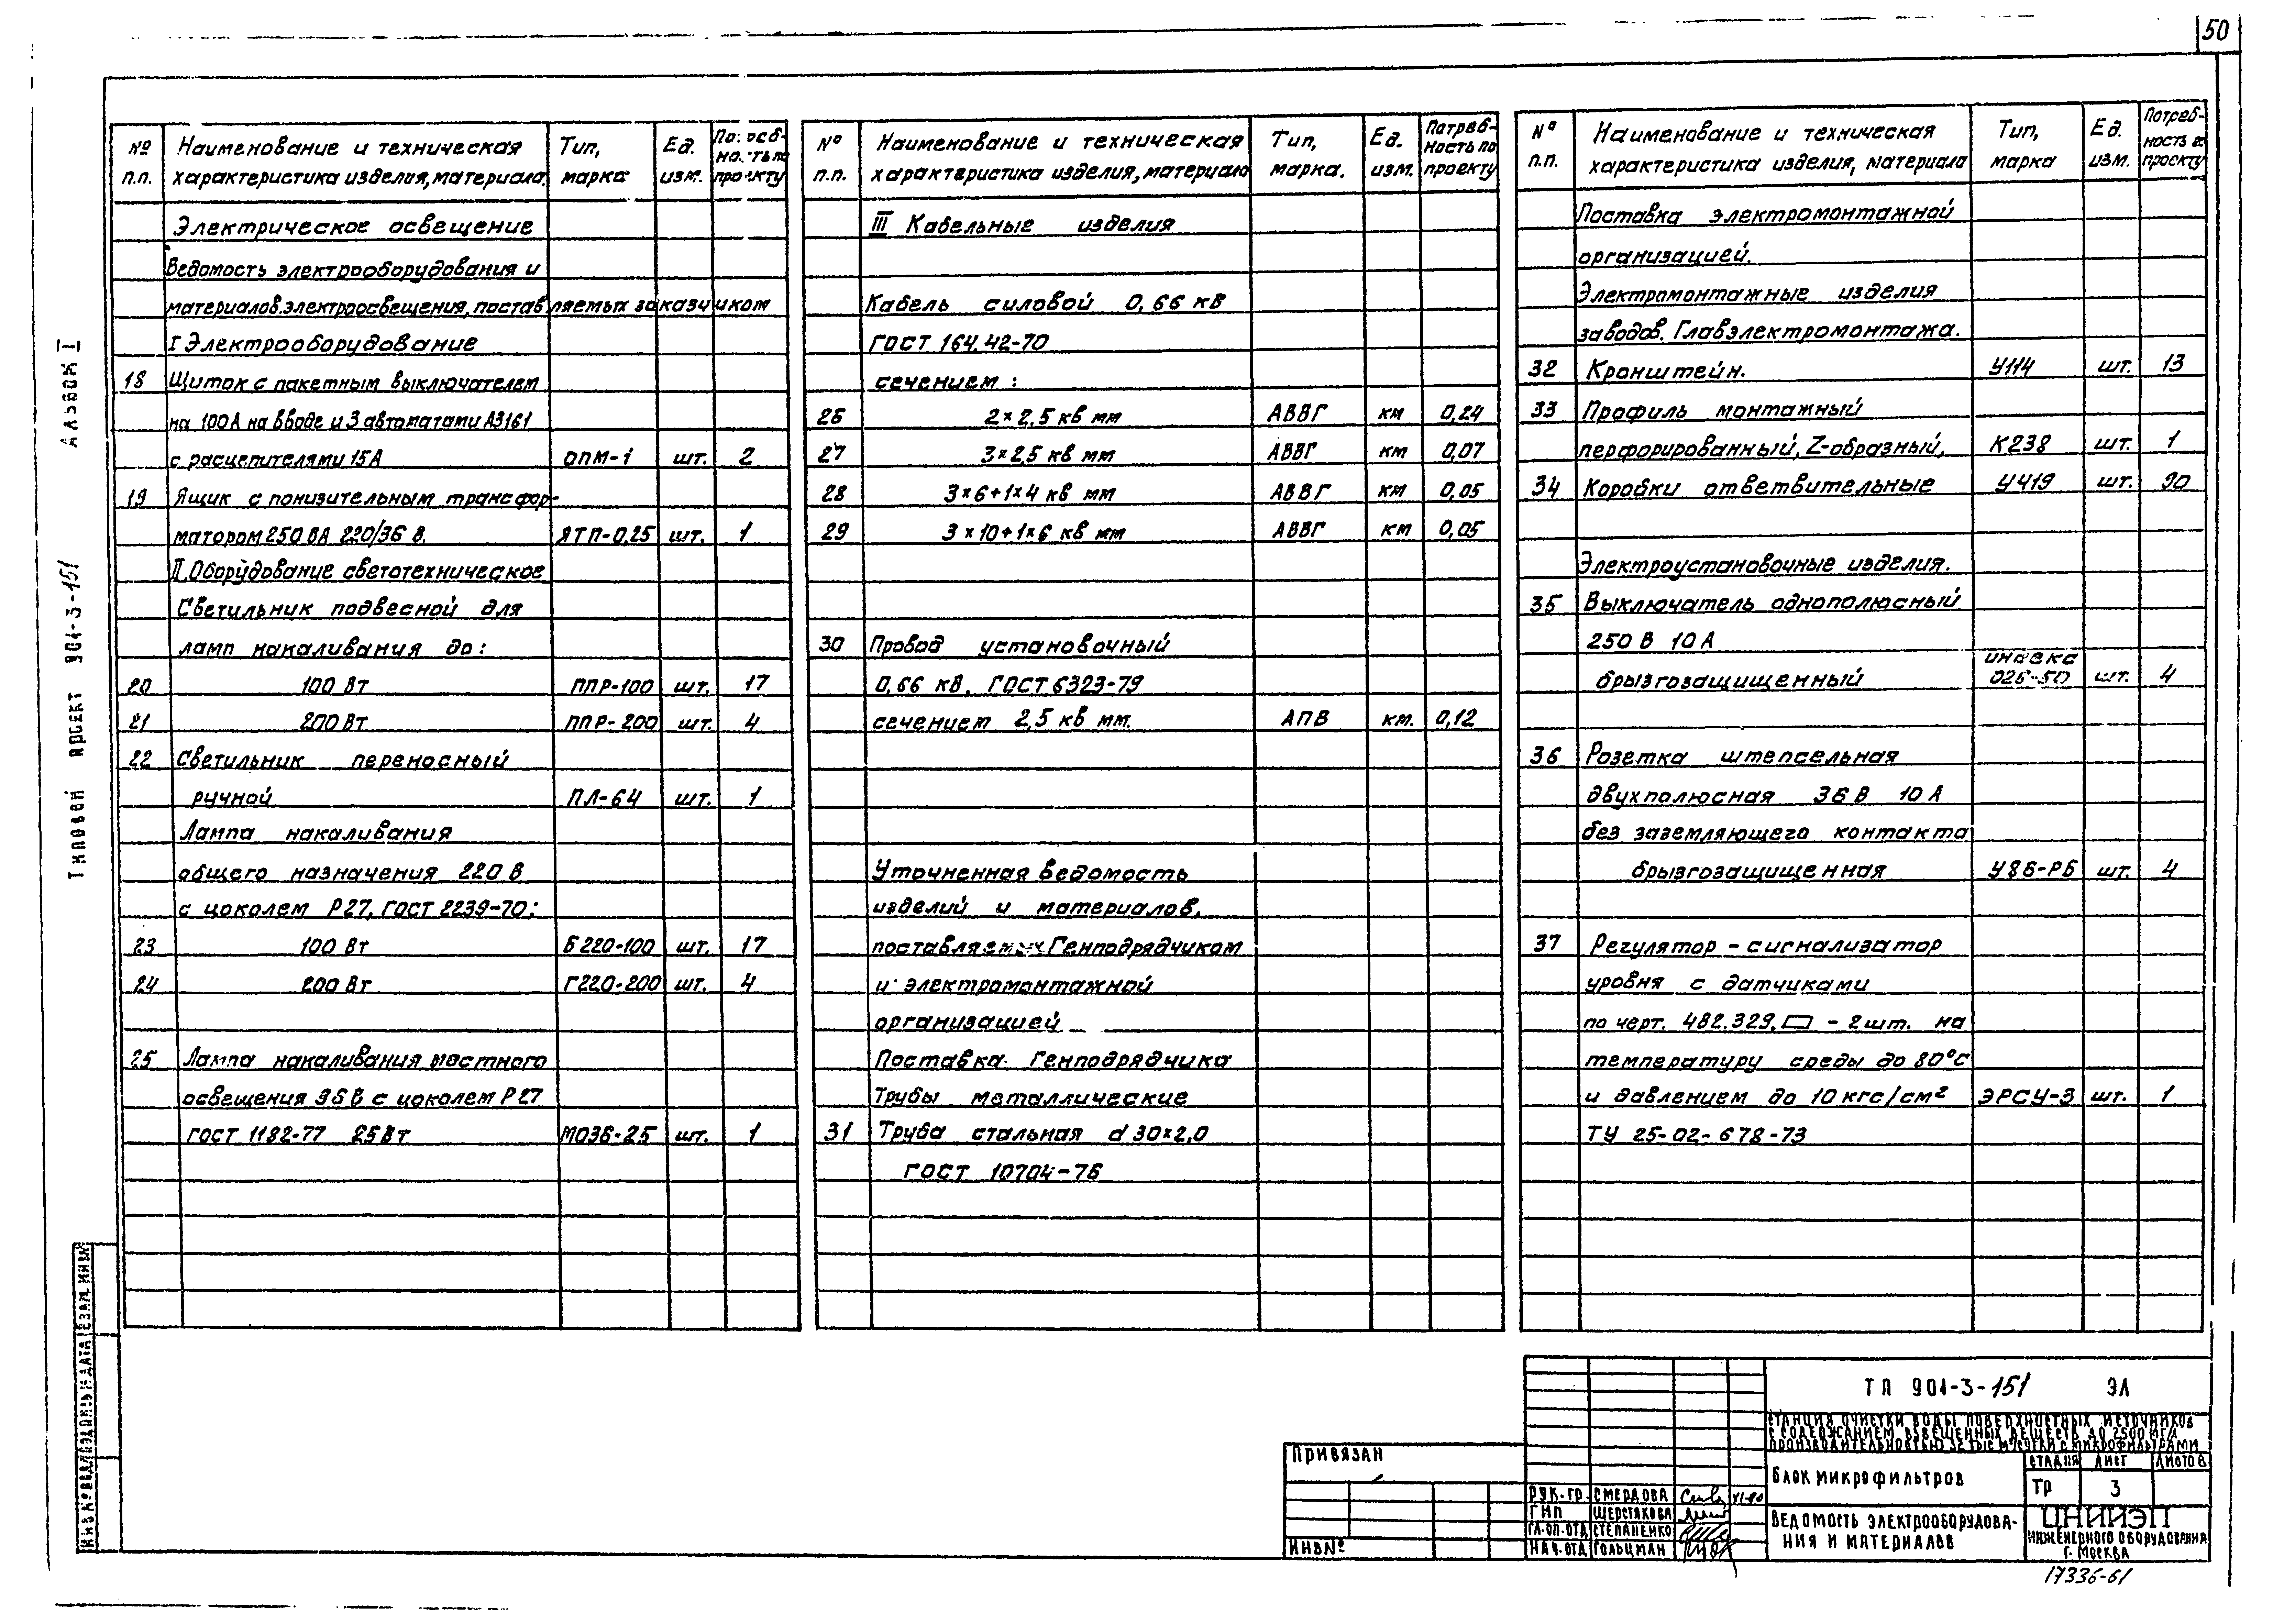 50
№ п.п.
Наименование и техническая характеристика изделия, материала.
Тип, марка
Ед. изм.
проекту
Электрическое освещение
Ведомость электрооборудования и
материалов электроосвещения, поставляемых заказчиком
I Электрооборудование
18 Щиток с пакетным выключателем
на 100А на вводе и 3 автоматами А3161
с расцепителями 15А ОПМ-1 шт. 2
19 Ящик с понизительным трансфор-
матором 250 ВА 220/36 В. ЯТП-0,25 шт. 1
II. Оборудование светотехническое
Светильник подвесной для
ламп накаливания до:
20 100 Вт ППР-100 шт. 17
21 200 Вт ППР-200 шт. 4
22 Светильник переносный
ручной ПЛ-64 шт. 1
Лампа накаливания
общего назначения 220 В
с цоколем Р27, ГОСТ 2239-70:
23 100 Вт Б220-100 шт. 17
24 200 Вт Г220-200 шт. 4
25 Лампа накаливания местного
освещения 36 В с цоколем Р27
ГОСТ 1182-77 25 Вт МО36-25 шт. 1
№ п.п.
Наименование и техническая характеристика изделия, материала
Тип, марка.
Ед. изм.
Потреб-
ность по
проекту
III Кабельные изделия
Кабель силовой 0,66 кВ
ГОСТ 164.42-70
сечением:
26 2×2,5 кв мм АВВГ км 0,24
27 3×2,5 кв мм АВВГ км 0,07
28 3×6+1×4 кв мм АВВГ км 0,05
29 3×10+1×6 кв мм АВВГ км 0,05
30 Провод установочный
0,66 кВ, ГОСТ 6323-79
сечением 2,5 кв мм. АПВ км. 0,12
Уточненная ведомость
изделий и материалов,
поставляемых Генподрядчиком
и электромонтажной
организацией
Поставка Генподрядчика
Трубы металлические
31 Труба стальная d 30×2,0
ГОСТ 10704-76
№ п.п.
Наименование и техническая характеристика изделия, материала
Тип, марка
Ед. изм.
Потреб-
ность по
проекту
Поставка электромонтажной
организацией.
Электромонтажные изделия
заводов Главэлектромонтажа.
32 Кронштейн. У114 шт. 13
33 Профиль монтажный
перфорированный, Z-образный, К238 шт. 1
34 Коробки ответвительные У419 шт. 90
Электроустановочные изделия.
35 Выключатель однополюсный
250 В 10 А
брызгозащищенный индекс 026-50 шт. 4
36 Розетка штепсельная
двухполюсная 36 В 10 А
без заземляющего контакта
брызгозащищенная У86-РБ шт. 4
37 Регулятор - сигнализатор
уровня с датчиками
по черт. 482.329. - 2 шт. на
температуру среды до 80°С
и давлением до 10 кгс/см² ЭРСУ-3 шт. 1
ТУ 25-02-678-73
Альбом I
Типовой проект 904-3-151
Привязан
ИНВ №
ТП 901-3-151 ЭЛ
СТАНЦИЯ ОЧИСТКИ ВОДЫ ПОВЕРХНОСТНЫХ ИСТОЧНИКОВ
С СОДЕРЖАНИЕМ ВЗВЕШЕННЫХ ВЕЩЕСТВ ДО 2500 МГ/Л
С МИКРОФИЛЬТРАМИ
РУК. ГР. СМЕРДОВА XI-80
ГИП ШЕРСТЯКОВА
ГЛ. СП. ОТД СТЕПАНЕНКО
НАЧ. ОТД ГОЛЬЦМАН
БЛОК МИКРОФИЛЬТРОВ
СТАДИЯ ЛИСТ ЛИСТОВ
ТР 3
ВЕДОМОСТЬ ЭЛЕКТРООБОРУДОВА-
НИЯ И МАТЕРИАЛОВ
ЦНИИЭП
ИНЖЕНЕРНОГО ОБОРУДОВАНИЯ
Г. МОСКВА
17336-61